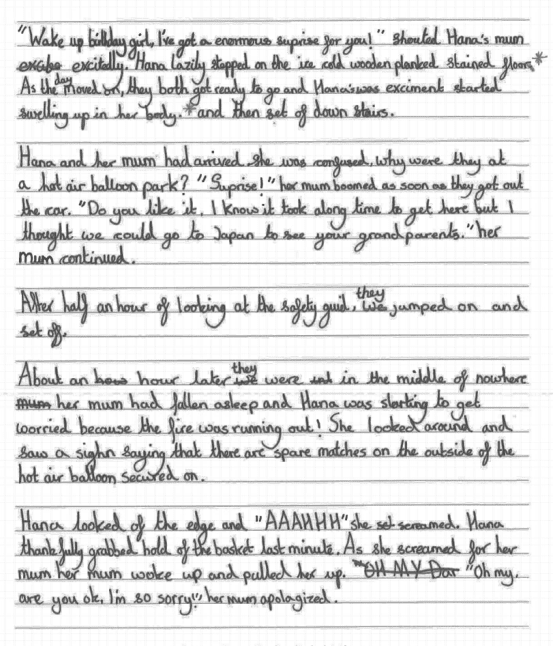 "Wake up bithday girl, I've got a enormous suprise for you!" shouted Hana's mum
excitedly. Hana lazily stepped on the ice cold wooden planked stained floor,*
As the day moved on, they both got ready to go and Hana's was exciment started
swelling up in her body. *and then set of down stairs.
Hana and her mum had arrived. She was confused, why were they at
a hot air balloon park? "Suprise!" her mum boomed as soon as they got out
the car. "Do you like it, I know it took along time to get here but I
thought we could go to Japan to see your grandparents." her
mum continued.
After half an hour of looking at the safety guid, they we jumped on and
set off.
About an hour later they we were in the middle of nowhere
mum her mum had fallen asleep and Hana was starting to get
worried because the fire was running out! She looked around and
saw a sighn saying that there are spare matches on the outside of the
hot air balloon secured on.
Hana looked of the edge and "AAAHHH" she set screamed. Hana
thankfully grabbed hold of the basket last minute. As she screamed for her
mum her mum woke up and pulled her up. "OH MY Dar "Oh my,
are you ok, I'm so sorry!" her mum apolagized.